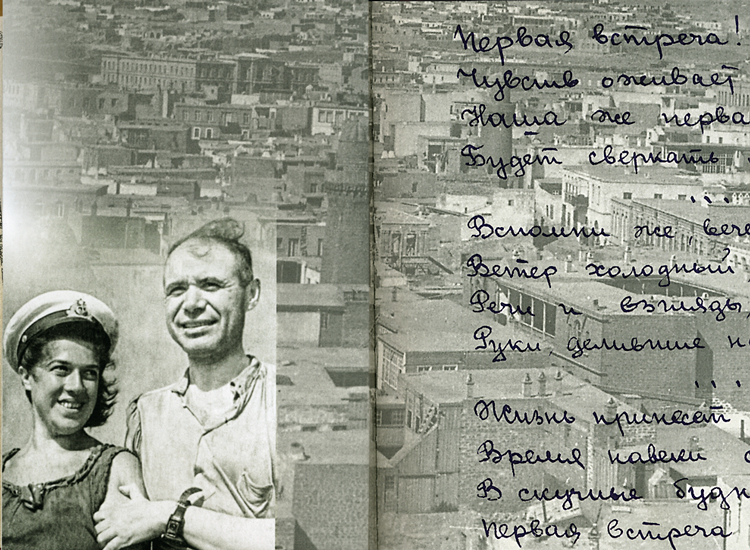 Первая встреча!
Чувств оживает
Наша же перва
Будет сверкать
...
Вспомни же вече
Ветер холодный
Речи и взгляды,
Руки, делившие н
...
Жизнь принесет
Время навеки с
В скучные будн
Первая встреча